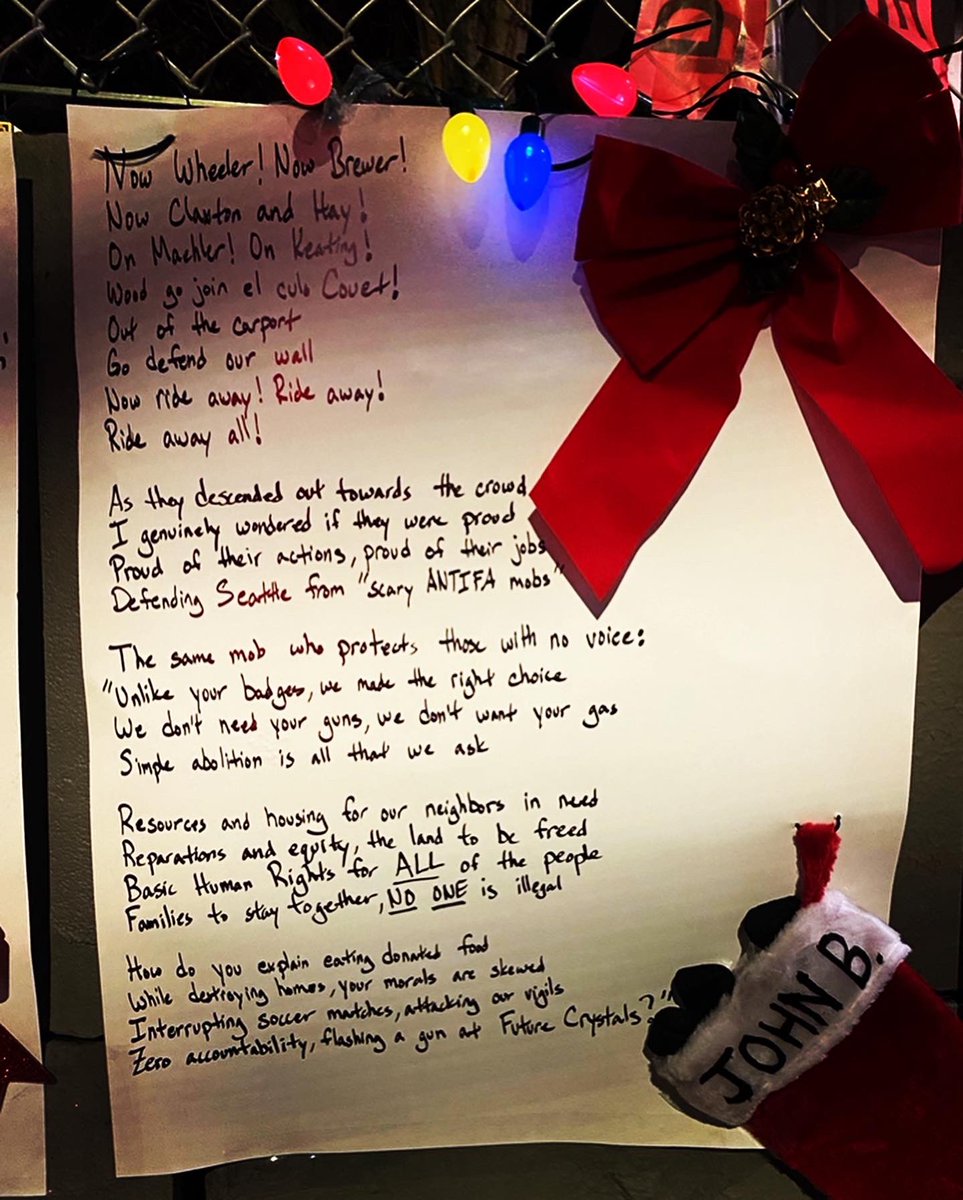 Now Wheeler! Now Brewer!
Now Claxton and Hay!
On Maehler! On Keating!
Wood go join el culo Couet!
Out of the carport
Go defend our wall
Now ride away! Ride away!
Ride away all!
As they descended out towards the crowd
I genuinely wondered if they were proud
Proud of their actions, proud of their jobs
Defending Seattle from "scary ANTIFA mobs"
The same mob who protects those with no voice:
"Unlike your badges, we made the right choice
We don't need your guns, we don't want your gas
Simple abolition is all that we ask
Resources and housing for our neighbors in need
Reparations and equity, the land to be freed
Basic Human Rights for ALL of the people
Families to stay together, NO ONE is illegal
How do you explain eating donated food
While destroying homes, your morals are skewed
Interrupting soccer matches, attacking our vigils
Zero accountability, flashing a gun at Future Crystals?"
JOHN B.